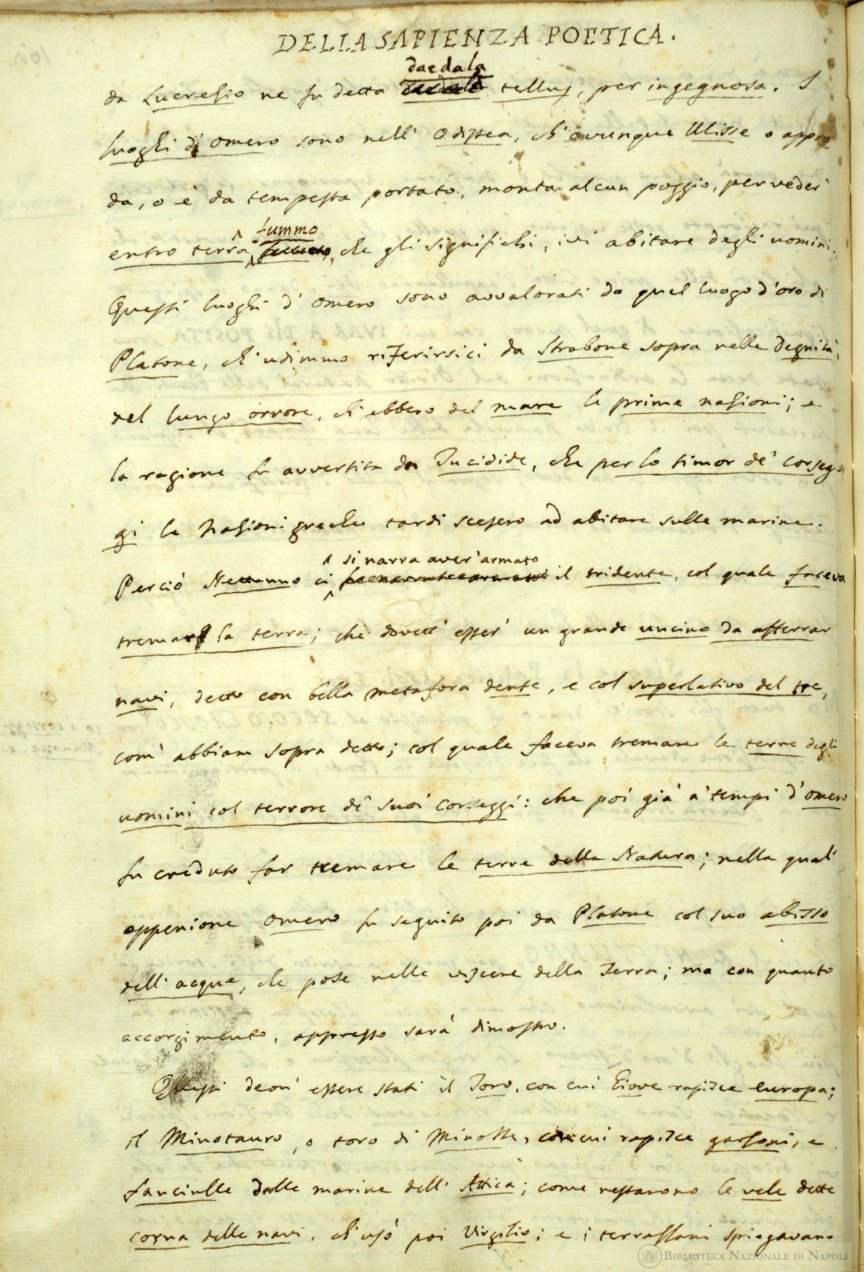 DELLA SAPIENZA POETICA.
daedala
da Lucrezio ne fu detta tellus, per ingegnosa. I
luoghi d'Omero sono nell'Odissea, ch'ovunque Ulisse o appro
da, o è da tempesta portato, monta alcun poggio, per veder'
fummo
entro terra, che gli significhi, ivi abitare degli uomini.
Questi luoghi d'Omero sono avvalorati da quel luogo d'oro di
Platone, ch'udimmo riferirsici da Strabone sopra nelle Degnità,
del lungo orrore, ch'ebbero del mare le prime nazioni; e
la ragione fu avvertita da Tucidide, che per lo timor de' corseg
gi le Nazioni greche tardi scesero ad abitare sulle marine.
si narra aver'armato
Perciò Nettunno ci il tridente, col quale faceva
tremar la terra; che dovett'esser' un grande uncino da afferrar
navi, detto con bella metafora dente, e col superlativo del tre,
com'abbiam sopra detto; col quale faceva tremare le terre degli
uomini col terrore de' suoi corseggi: che poi già a' tempi d'Omero
fu creduto far tremare le terre della Natura; nella qual'
oppenione Omero fu seguito poi da Platone col suo abisso
dell'acque, che pose nelle viscere della Terra; ma con quanto
accorgimento, appresso sarà dimostro.
Questi deon'essere stati il Toro, con cui Giove rapisce Europa;
il Minotauro, o toro di Minosse, con cui rapisce garzoni, e
fanciulle dalle marine dell'Attica; come restarono le vele dette
corna delle navi, ch'usò poi Virgilio; e i terrazzani spiegavano
BIBLIOTECA NAZIONALE DI NAPOLI